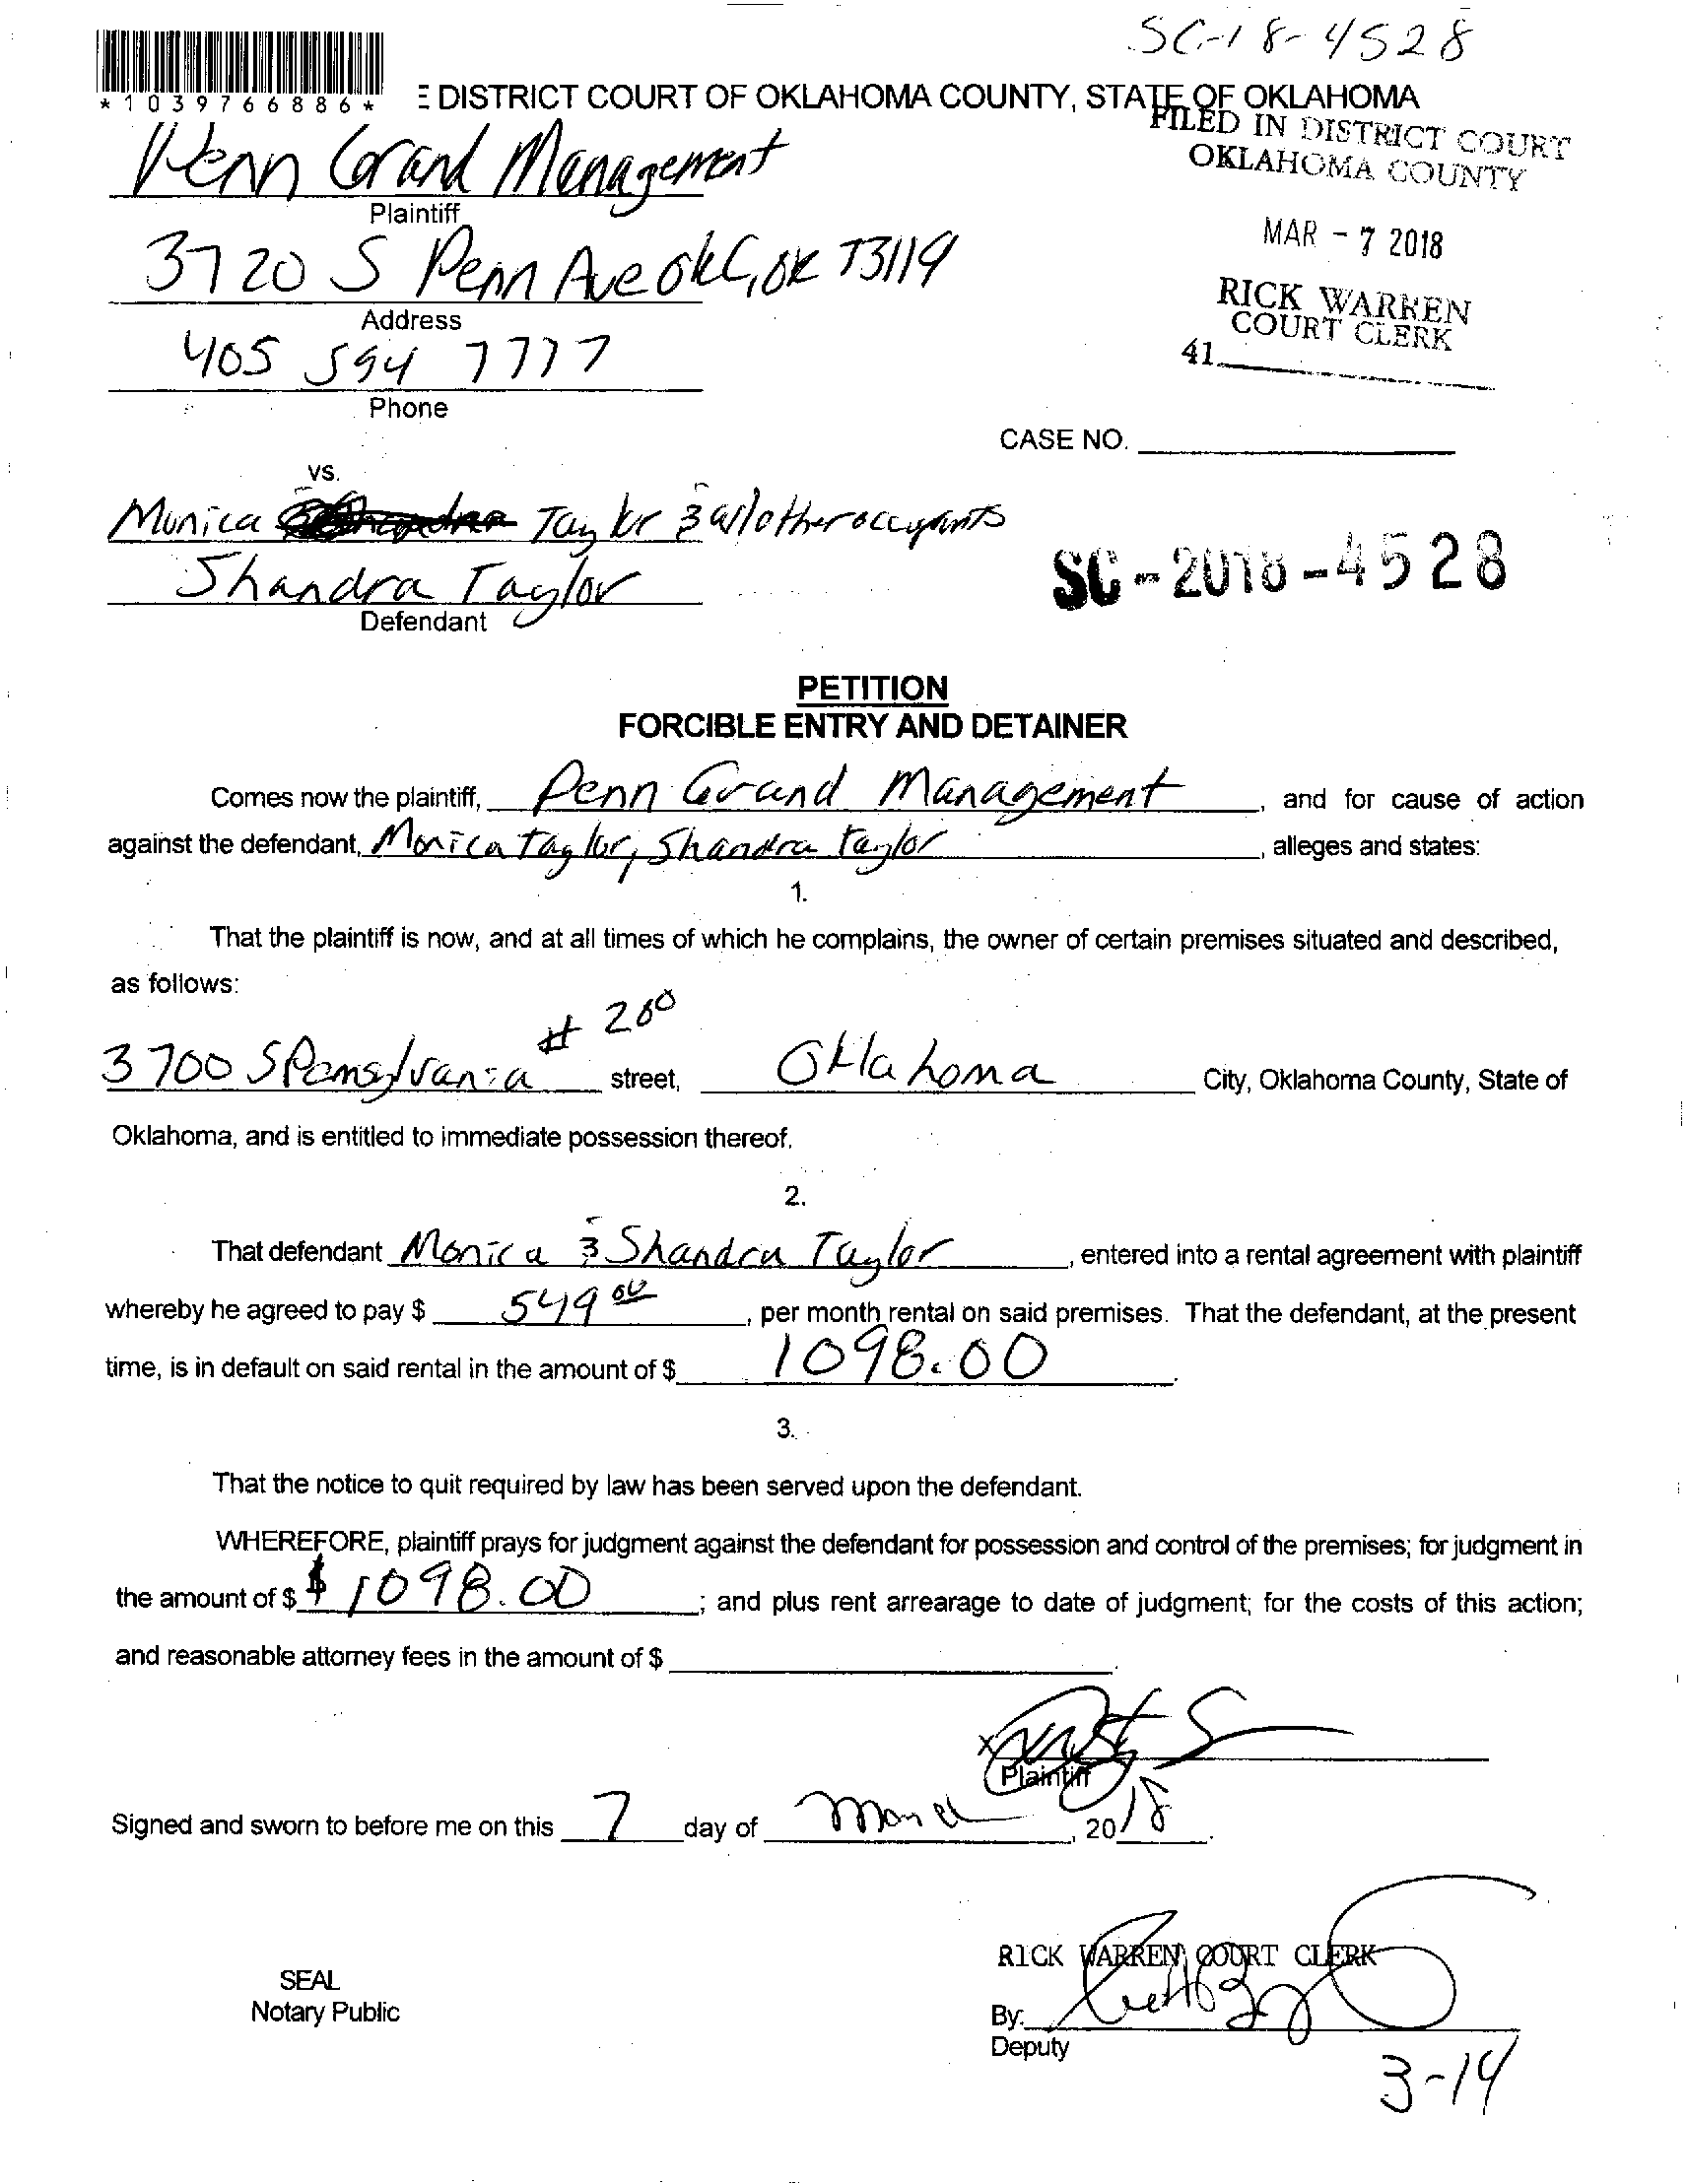 SC-18-4528
*1039766886*
DISTRICT COURT OF OKLAHOMA COUNTY, STATE OF OKLAHOMA
FILED IN DISTRICT COURT
OKLAHOMA COUNTY
Penn Grand Management
Plaintiff
MAR - 7 2018
3720 S Penn Ave okC, OK 73119
Address
RICK WARREN
COURT CLERK
41
405 594 7777
Phone
CASE NO.
vs.
Monica Taylor & all other occupants
Shandra Taylor
Defendant
SC-2018-4528
PETITION
FORCIBLE ENTRY AND DETAINER
Comes now the plaintiff, Penn Grand Management, and for cause of action
against the defendant, Monica Taylor, Shandra Taylor, alleges and states:
1.
That the plaintiff is now, and at all times of which he complains, the owner of certain premises situated and described,
as follows:
# 200
3700 S street, Oklahoma City, Oklahoma County, State of
Oklahoma, and is entitled to immediate possession thereof.
2.
That defendant Monica & Shandra Taylor, entered into a rental agreement with plaintiff
whereby he agreed to pay $ 549 00, per month rental on said premises. That the defendant, at the present
time, is in default on said rental in the amount of $ 1098.00.
3.
That the notice to quit required by law has been served upon the defendant.
WHEREFORE, plaintiff prays for judgment against the defendant for possession and control of the premises; for judgment in
the amount of $ $ 1098.00; and plus rent arrearage to date of judgment; for the costs of this action;
and reasonable attorney fees in the amount of $.
X
Plaintiff
Signed and sworn to before me on this 7 day of March, 2018.
RICK WARREN COURT CLERK
SEAL
Notary Public
By:
Deputy
3-14